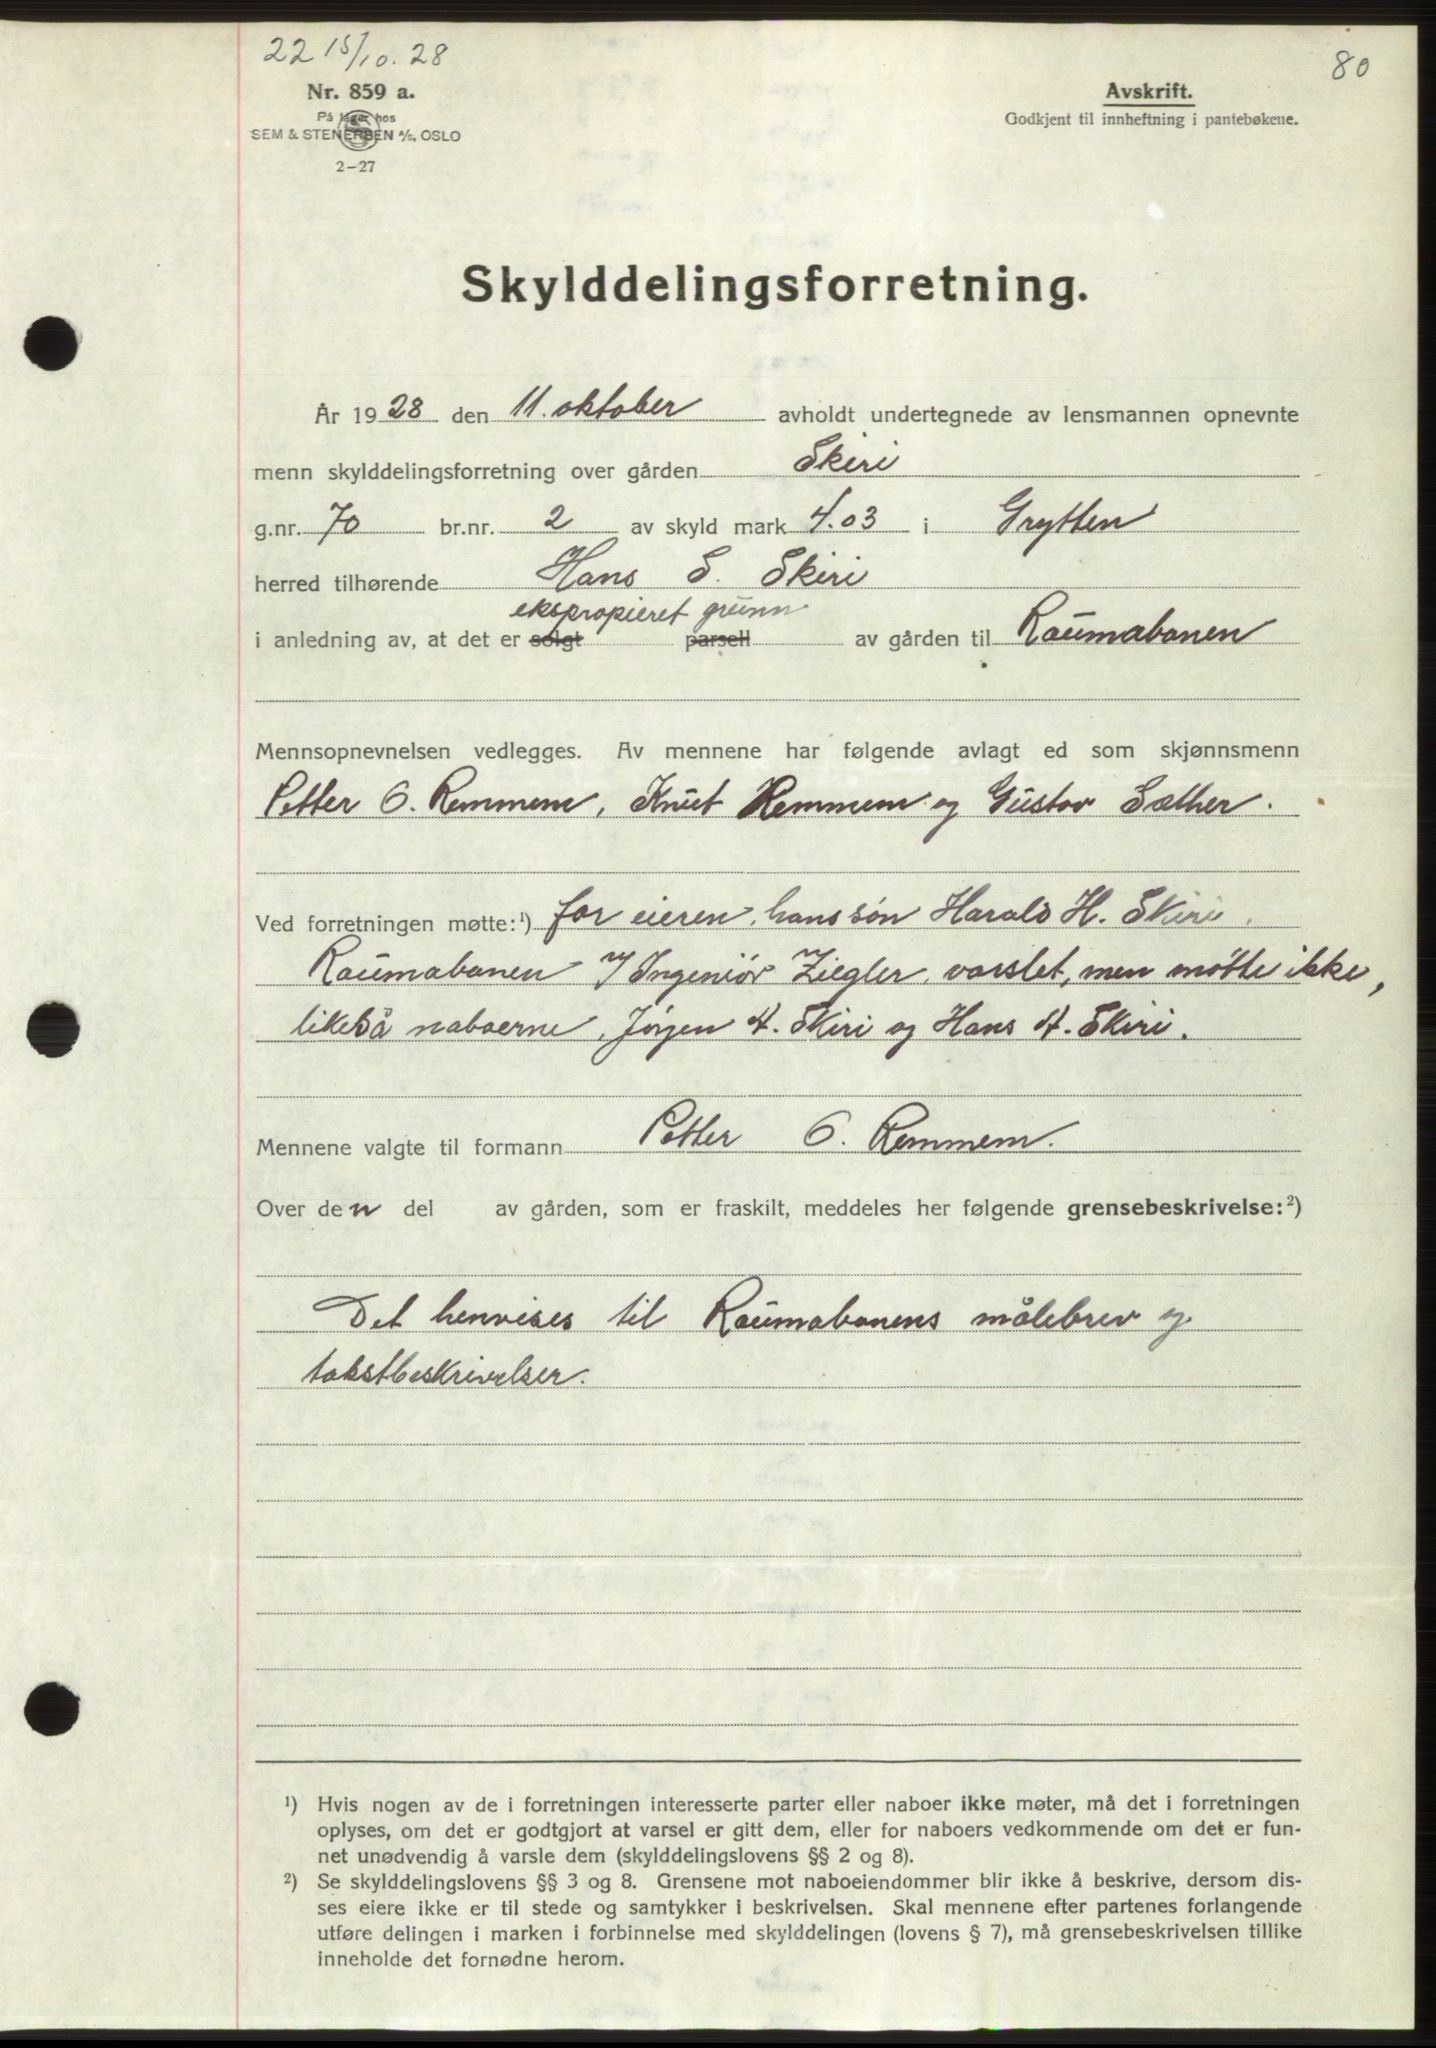 22 15/10. 28
80
Nr. 859 a.
På lager hos
SEM & STENERSEN A/S, OSLO
2-27
Avskrift.
Godkjent til innheftning i pantebøkene.
Skylddelingsforretning.
År 1928 den 11. oktober avholdt undertegnede av lensmannen opnevnte
menn skylddelingsforretning over gården Skiri
g.nr. 70 br.nr. 2 av skyld mark 4.03 i Grytten
herred tilhørende Hans S. Skiri
ekspropieret grunn
i anledning av, at det er solgt parsell av gården til Raumabanen
Mennsopnevnelsen vedlegges. Av mennene har følgende avlagt ed som skjønnsmenn
Petter O. Remmem, Knut Remmem og Gustav Sæther.
Ved forretningen møtte:¹) for eieren, hans søn Harald H. Skiri.
Raumabanen v/ Ingeniør Ziegler, varslet, men møtte ikke,
likeså naboerne, Jørgen A. Skiri og Hans A. Skiri.
Mennene valgte til formann Petter O. Remmem.
Over den del av gården, som er fraskilt, meddeles her følgende grensebeskrivelse:²)
Det henvises til Raumabanens målebrev og
takstbeskrivelser.
¹) Hvis nogen av de i forretningen interesserte parter eller naboer ikke møter, må det i forretningen
oplyses, om det er godtgjort at varsel er gitt dem, eller for naboers vedkommende om det er fun-
net unødvendig å varsle dem (skylddelingslovens §§ 2 og 8).
²) Se skylddelingslovens §§ 3 og 8. Grensene mot naboeiendommer blir ikke å beskrive, dersom dis-
ses eiere ikke er til stede og samtykker i beskrivelsen. Skal mennene efter partenes forlangende
utføre delingen i marken i forbinnelse med skylddelingen (lovens § 7), må grensebeskrivelsen tillike
inneholde det fornødne herom.